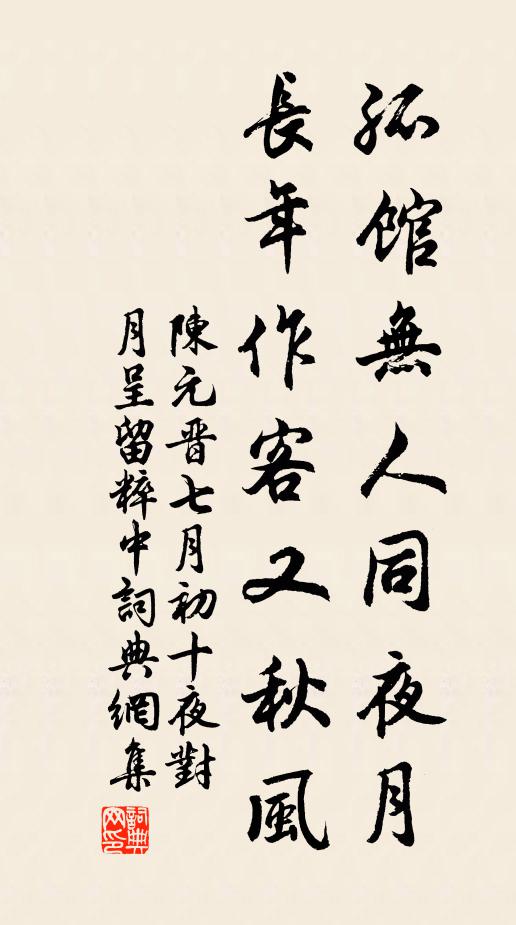 孤館無人同夜月
長年作客又秋風
陳元晋七月初十夜對
月呈留粹中詞典網集
詞典
网印